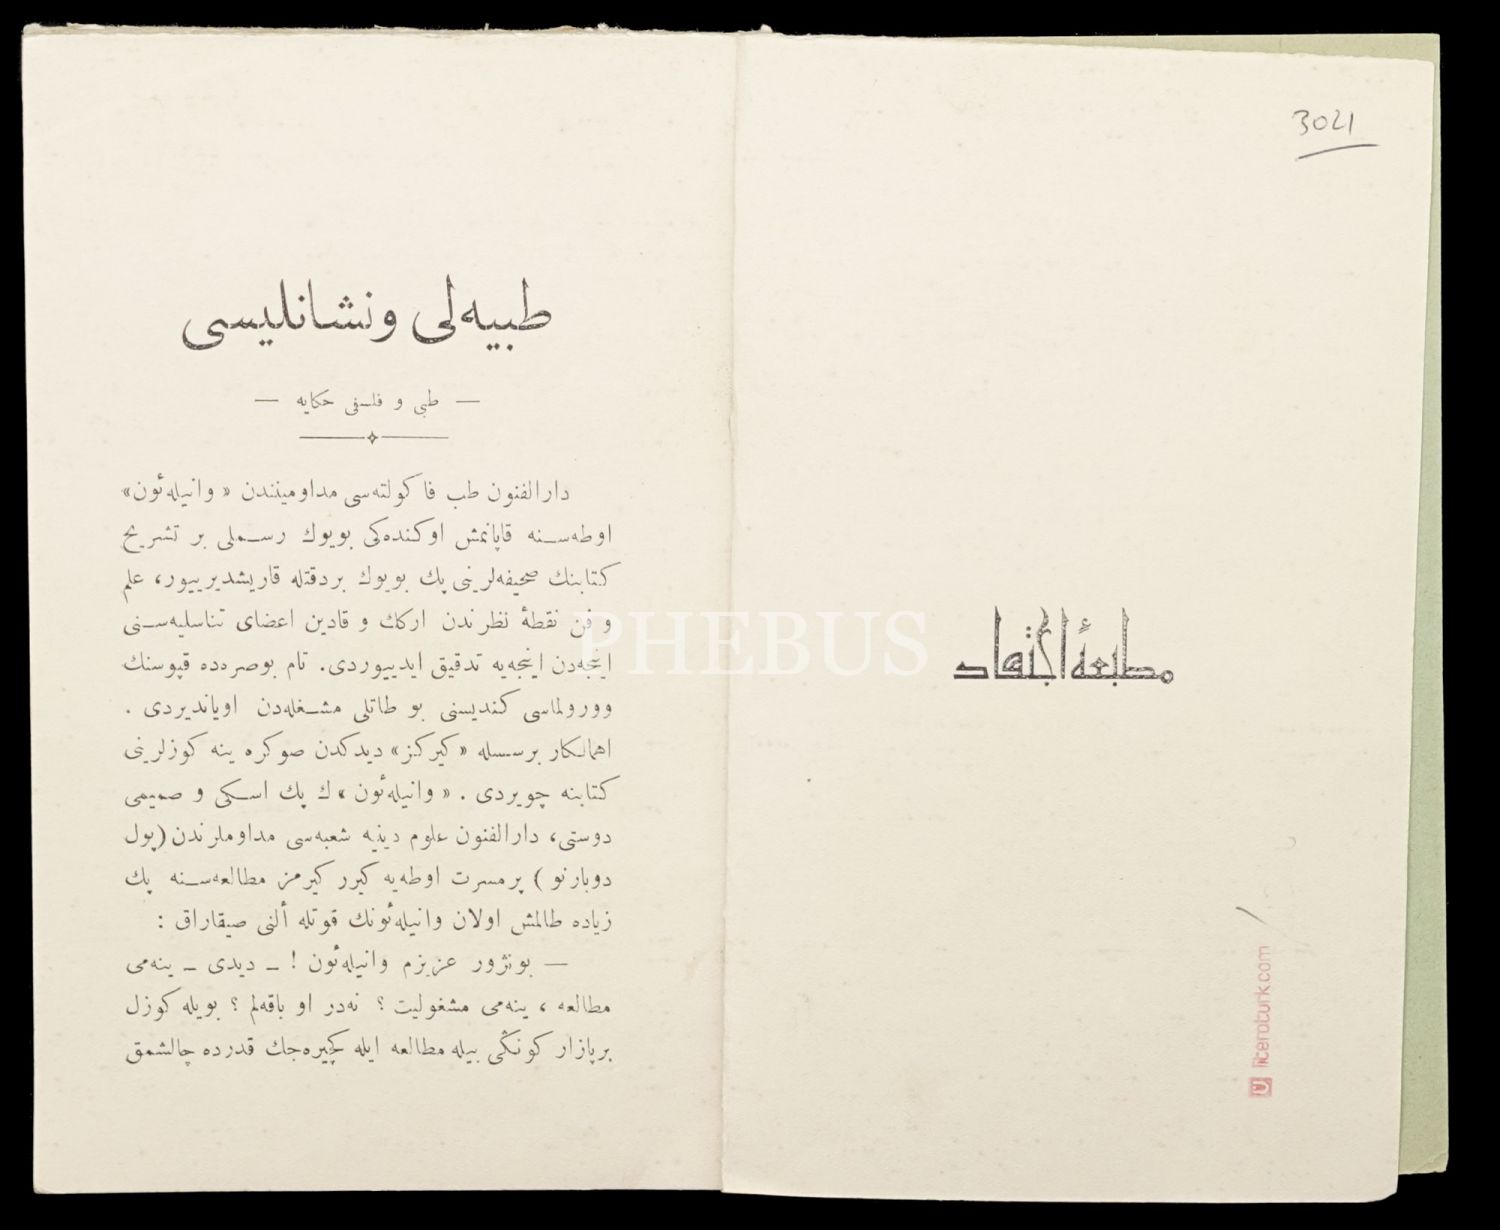 3021
مطبعۀ اجتهاد
liceraturk.com
PHEBUS
طبیه‌لی ونشانلیسی
— طبی و فلسفی حکایه —
دارالفنون طب فاکولته‌سی مداومیندن « وانیله‌ئون»
اوطه‌سنه قاپانمش اوکنده‌کی بویوك رسملی بر تشریح
کتابنك صحیفه‌لرینی پك بویوك بردقتله قاریشدیرییور، علم
و فن نقطۀ نظرندن ارکك و قادین اعضای تناسلیه‌سنی
اینجه‌دن اینجه‌یه تدقیق ایدییوردی. تام بوصره‌ده قپوسنك
وورولماسی کندیسنی بو طاتلی مشغله‌دن اویاندیردی .
اهمالکار برسسله «کیرکز» دیدکدن صوکره ینه کوزلرینی
کتابنه چویردی . « وانیله‌ئون » ك پك اسکی و صمیمی
دوستی، دارالفنون علوم دینیه شعبه‌سی مداوملرندن (پول
دوبارنو ) پرمسرت اوطه‌یه کیرر کیرمز مطالعه‌سنه پك
زیاده طالمش اولان وانیله‌ئونك قوتله ألنی صیقاراق :
— بونژور عزیزم وانیله‌ئون ! ـ دیدی ـ ینه‌می
مطالعه ، ینه‌می مشغولیت ؟ نه‌در او باقه‌لم ؟ بویله کوزل
برپازار کونکی بیله مطالعه ایله کچیره‌جك قدرده چالشمق